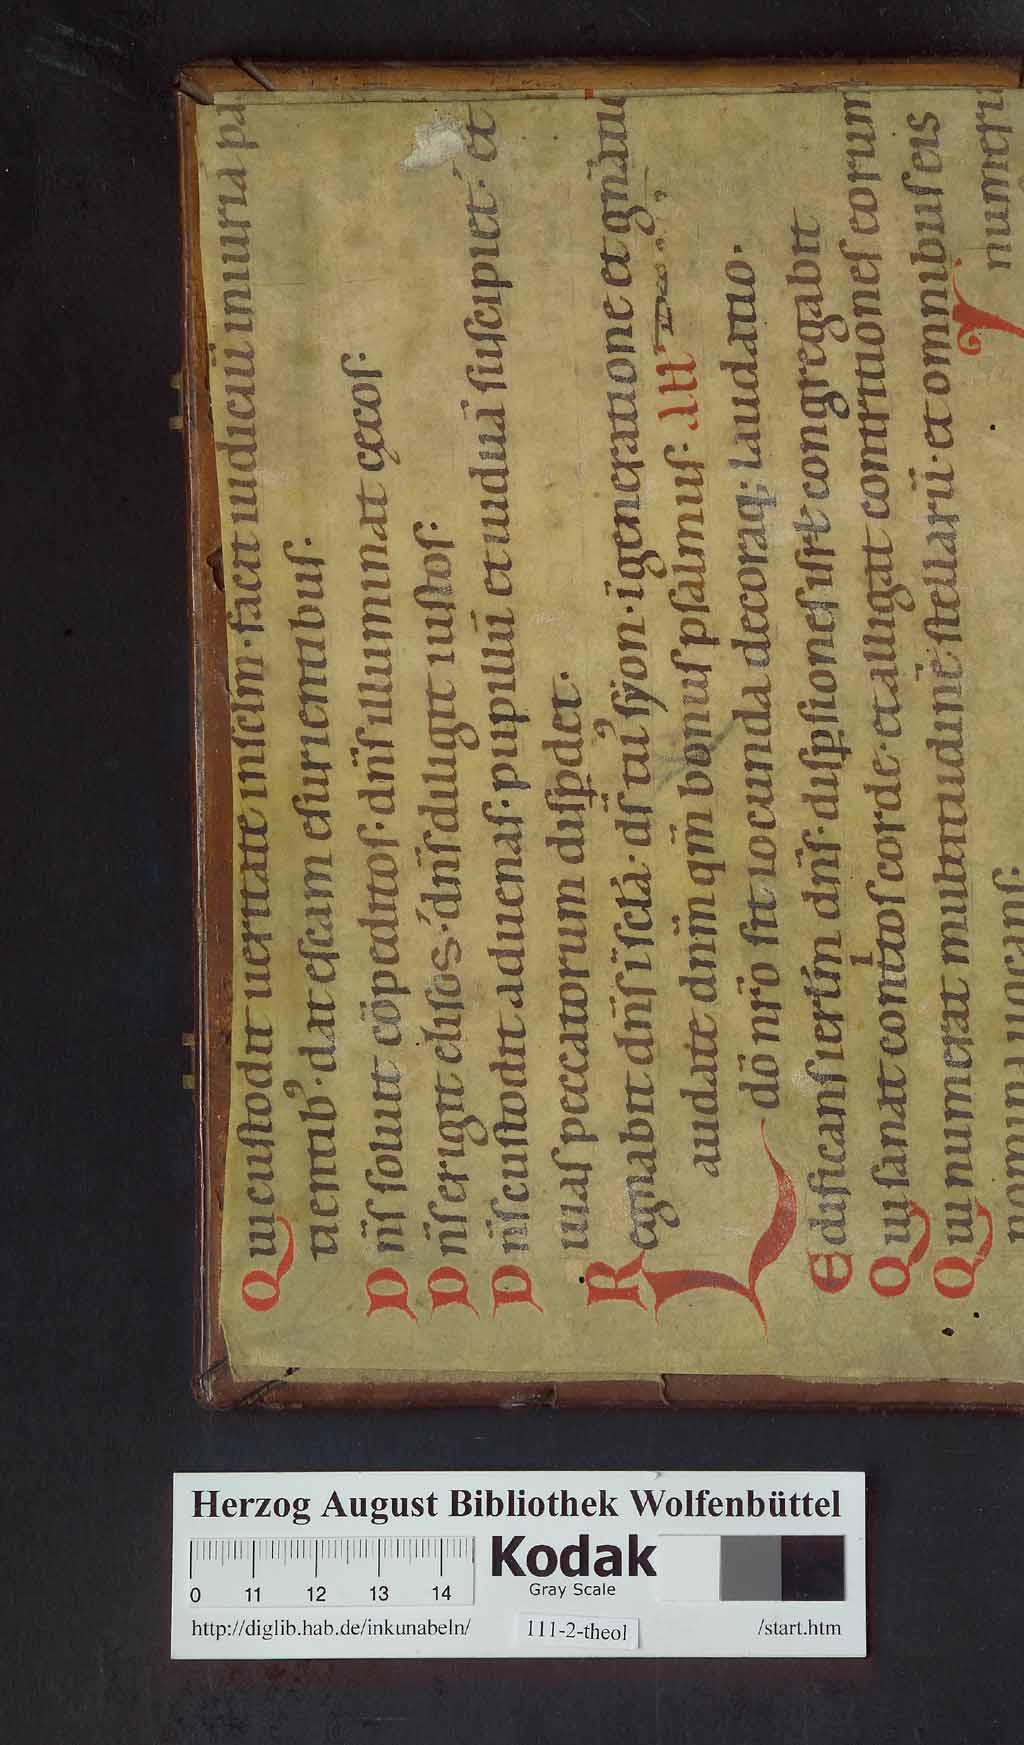 Qui custodit ueritatē inscłm · facit iudiciū iniuria pa
tientib⁹ · dat escam esurientibus ·
Dn̄s soluit cōpeditos · dn̄s illuminat cęcos ·
Dn̄s erigit elisos · dn̄s diligit iustos ·
Dn̄s custodit aduenas · pupillū et uiduā suscipiet · et
uias peccatorum disp̄det ·
Regnabit dn̄s ī scła · ds̄ tuus syon · ī generatione et gn̄atio
audate dn̄m qm̄ bonus psalmus · ALL
L
dō nr̄o sit iocunda decoraq; laudatio ·
Edificans ierłm dn̄s · disp̄siones isrł congregabit
Qui sanat contritos corde · et alligat contritiones eorum
Qui numerat multitudinē stellarū · et omnibus eis
nomina uocans ·
numeri
Herzog August Bibliothek Wolfenbüttel
0 11 12 13 14
Kodak
Gray Scale
http://diglib.hab.de/inkunabeln/
111-2-theol
/start.htm